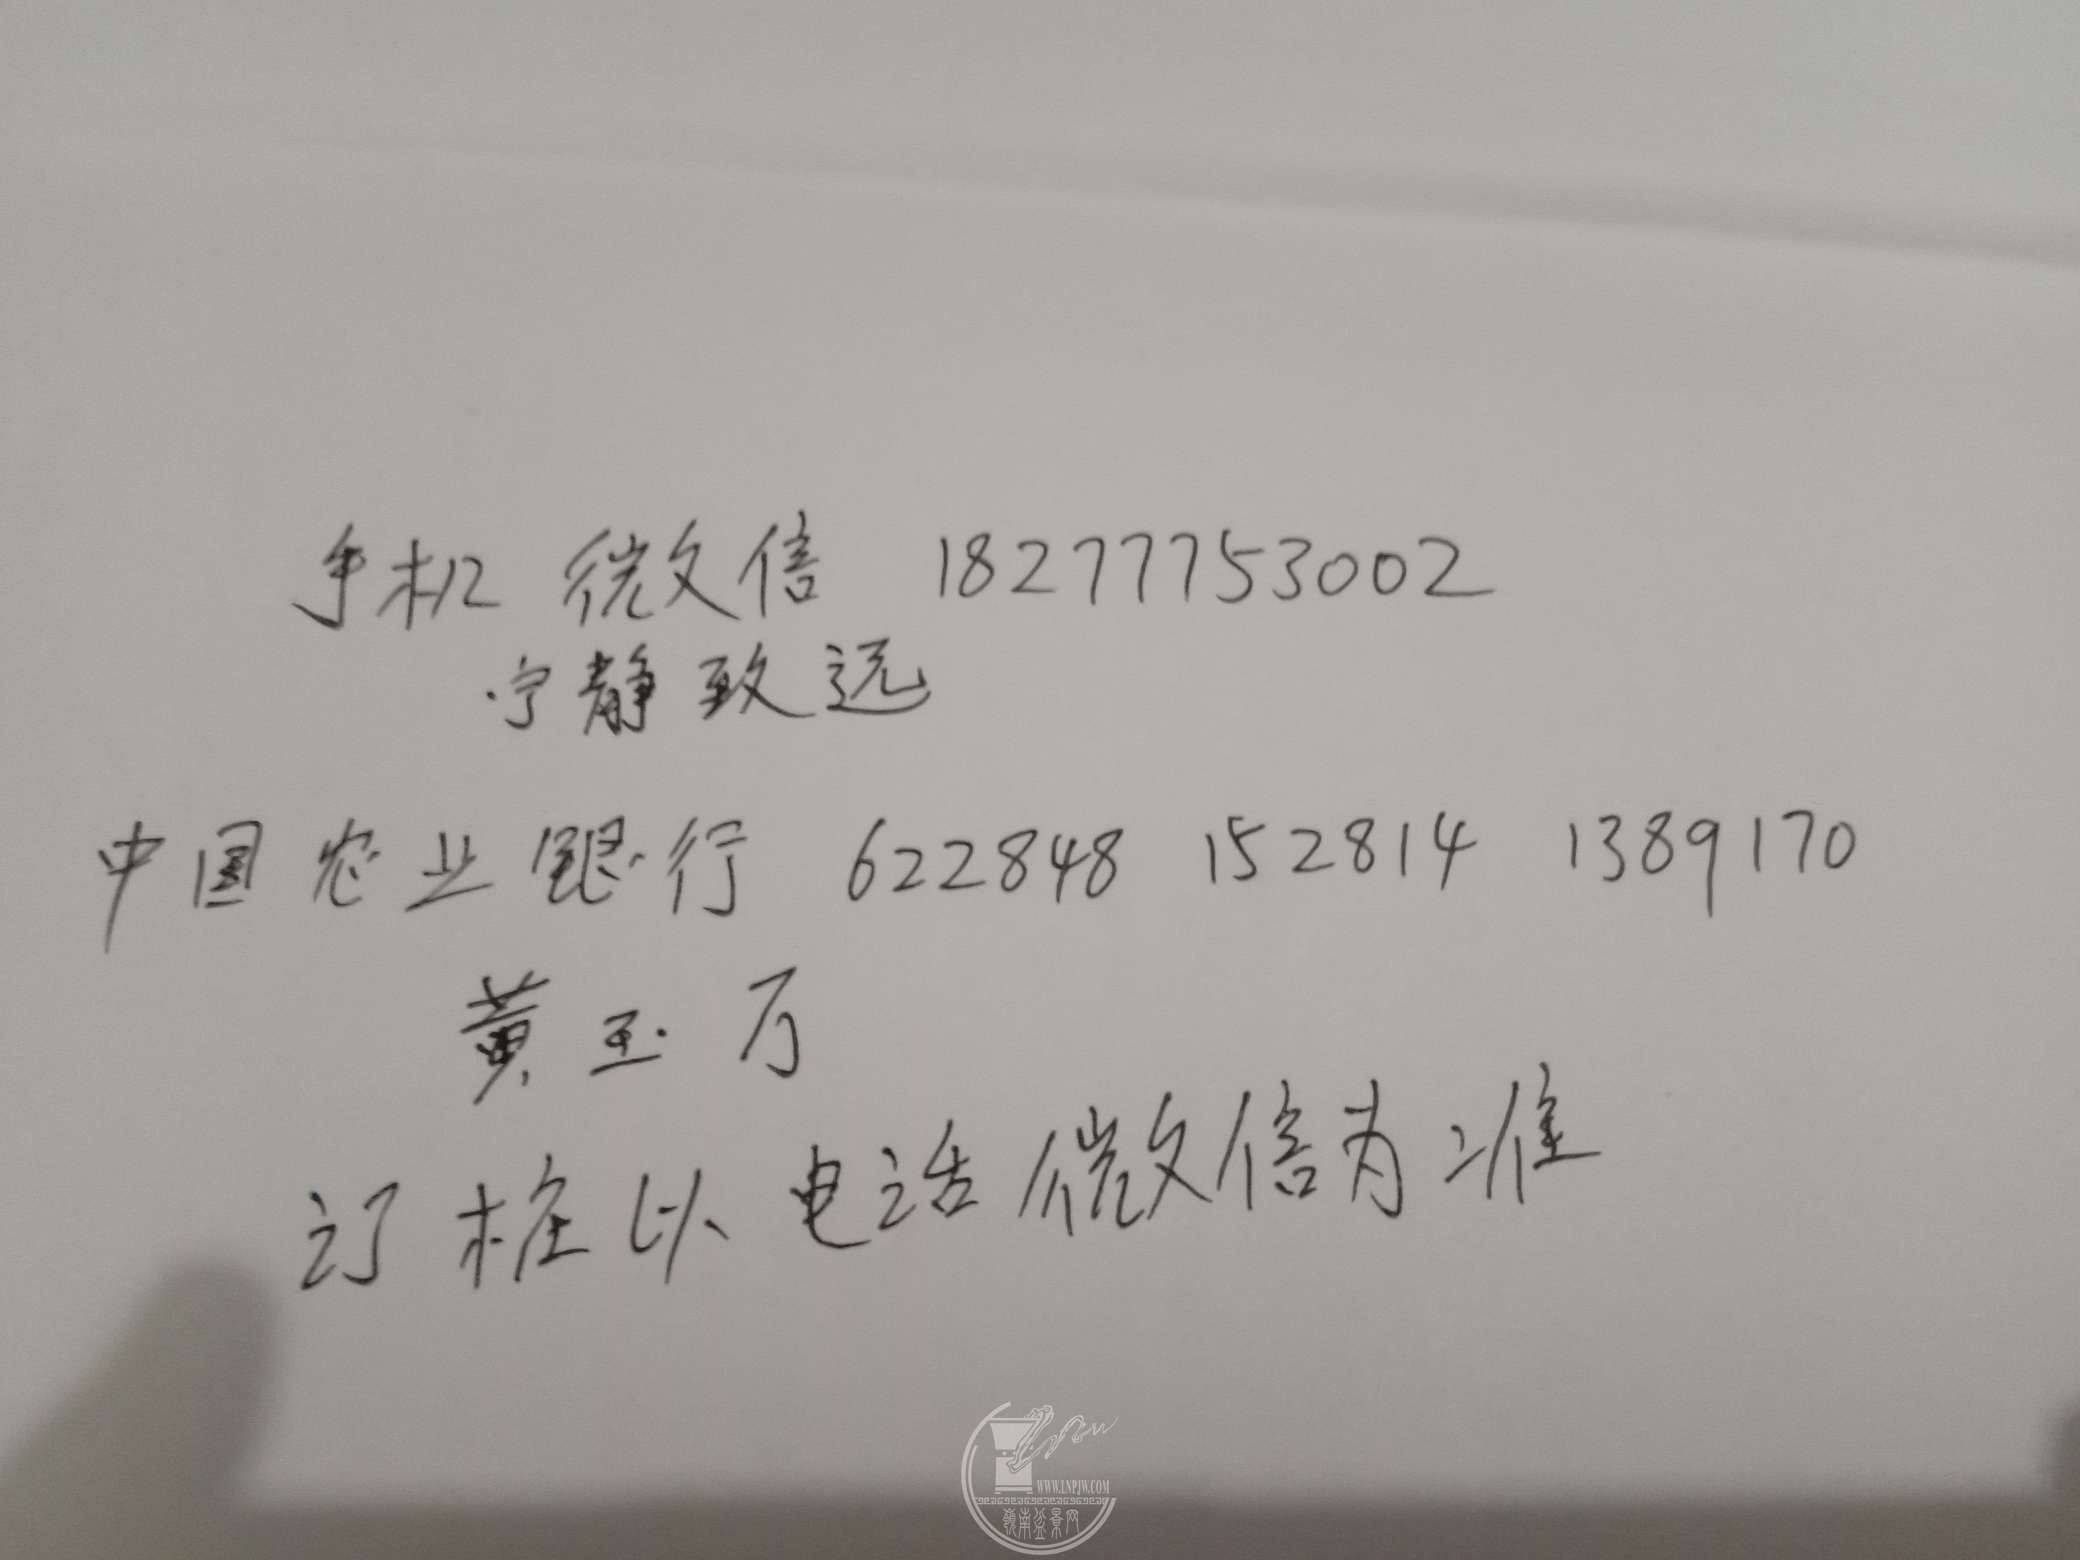 手机 微信 18277753002
宁静致远
中国农业银行 622848 152814 1389170
黄玉万
订桩以电话微信为准
WWW.LNPJW.COM
嶺南盆景网